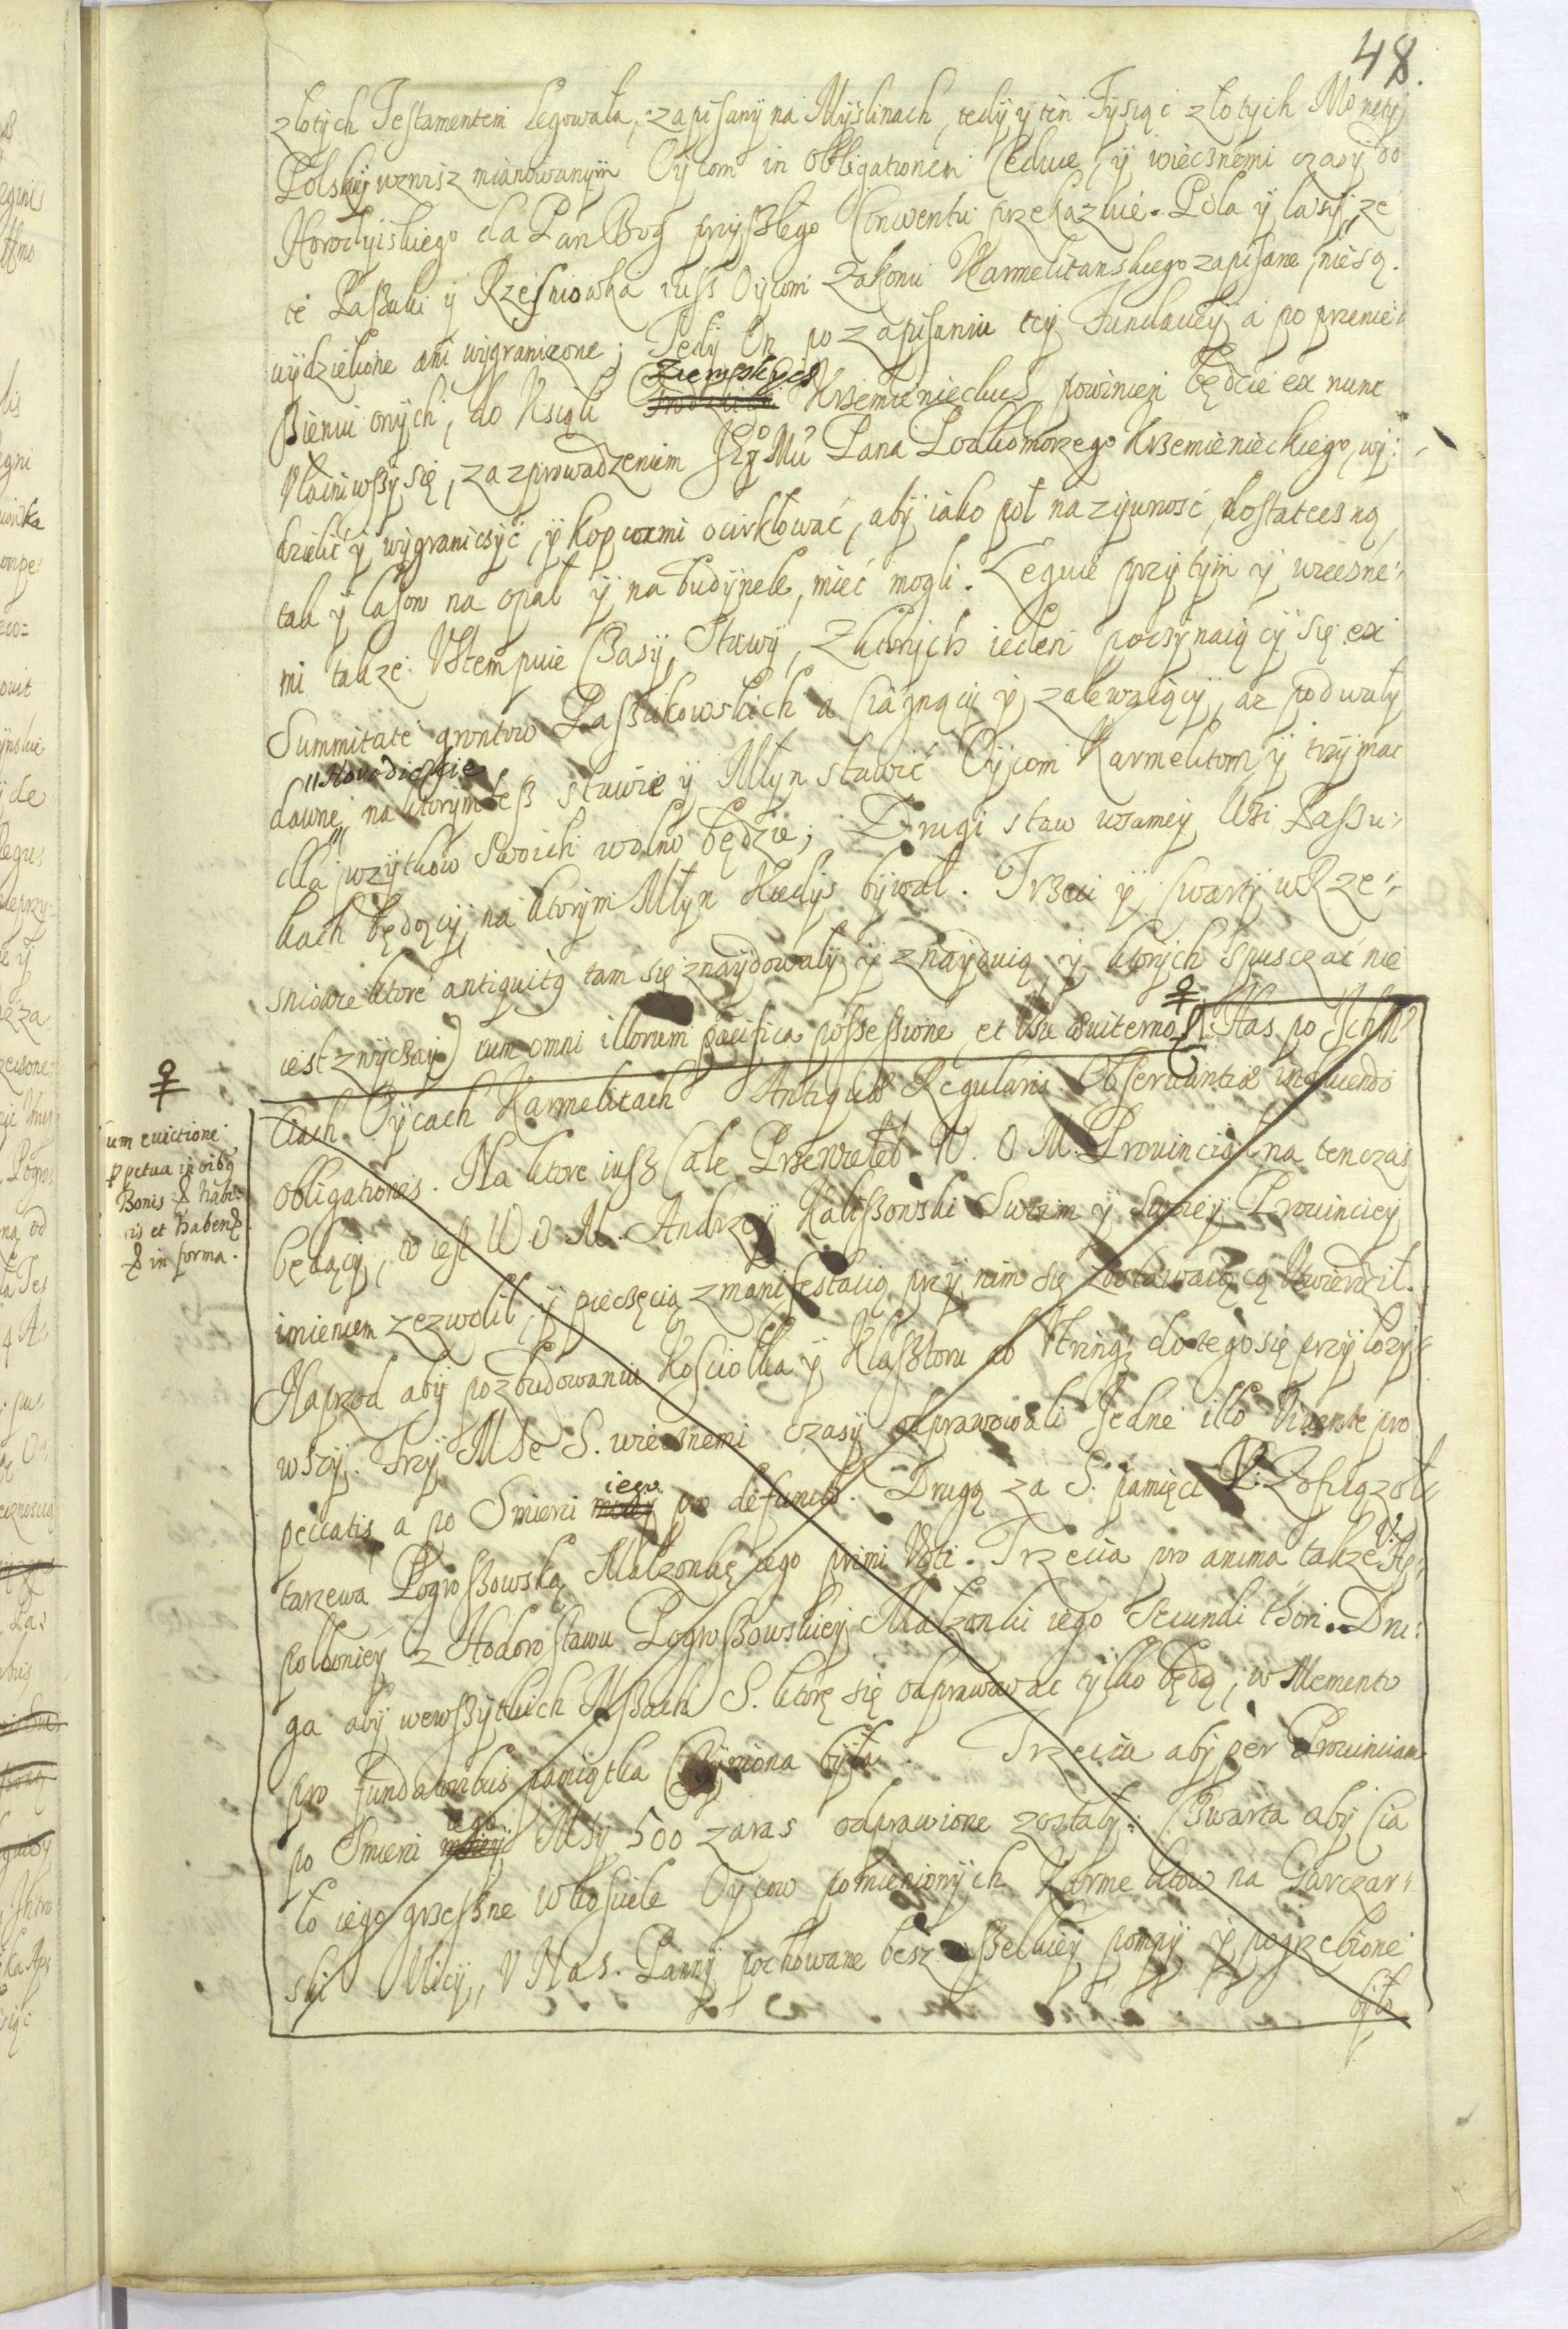 48.
złotych Testamentem legowała, zapisany na Myslinach, tedy y ten Tysiąc złotych Monety
Polskiy wznisz mianowanym Oycom in obligationem Ceduie, y wiecznemi czasy do
Horodyiskiego da Pan Bog przyszłego Conwentu przekazuie. Pola y lasy, ze
te Paszuki y Rzesniowka iusz Oycom Zakonu Karmelitanskiego zapisane, nie są.
wydzielone ani wygranizone; Tedy On po zapisaniu tey Fundacyi a po przenie:
sieniu onych, do Ksiąk Ziemskych Krzemienieckich powinien będzie ex nunc
Vłacniwszy się, za zprowadzeniem Jeº Mᶜⁱ Pana Podkomorzego Krzemienieckiego, wy:
dzielić y wygraniczyć, y kopcami ocirklować, aby iako pol na zywność, dostateczną,
tak y lasow na opał y na budynek, mieć mogli. Leguie przytym y wieczne:
mi takze Vstempuie Czasy, Stawy, Z ktorych ieden poczynaiący się ex
Summitate grontow Paszukowskich a Ciągnący y zalewaiący, az pod wały
Horodiskie
dawne, na ktorym tesz stawie y Młyn stawić Oycom Karmelitom y trzymac
dla wzytkow Swoich wolno będzie; Drugi staw w samey Wsi Paszu:
kach będący, na ktorym Młyn Kiedys bywał. Trzeci y Cwarty w Rze:
sniowce ktore antiquitq tam się znaydowały y znayduią, y ktorych spusczać nie
iest zwyczay) cum omni illorum pacifica possessione, et Usu ♀ Nas po Ich Mᶜ
♀
Ciach Oycach Karmelitach Antiquae Regularis Observantiae inducendo
um evictione
ppetua in oibq
Bonis & habi:
is et haben&
& in forma.
obligationes. Na ktore iusz Cale Przewieleb. W. O. M. Prouinciał na tenczas
będący, to iest W O M. Andrzey Kaliszowski Swoim y Swoiey Prouinciey
imieniem zezwolił, y pieczęcią z manifestacią przy nim się zostawaiącą Utwierdził.
Naprzod aby po zbudowaniu Kosciołka y Klasztoru ab Utrinq, do tego się przyłozy:
wszy. Trzy Msze S. wiecznemi czasy odprawowali Jedne illo Vivente pro
peccatis, a po Smierci iego pro defuncto. Drugą za S. pamięci P: Zofią z zoł:
tarzewa Pogroszowską Małzonkę iego primi Voti. Trzecia pro anima takze P: Ap:
poloniey z Hodorostawu Pogroszowskiey Małzonki iego Secundi thori. Dru:
ga aby wewszytkich Mszach S. ktore się odprawowac tylko będą, w Memento
pro fundatoribus pamiątka Czyniona była. Trzecia aby per Prouinciam
po Smierci iego Mszy 500 zaras odprawione zostały: Czwarta aby Cia
ło iego grzeszne w kosciele Oycow pomienionych Karmelitow na Garczar:
ski Vlicy, V Nas. Panny pochowane besz wszelkiey pompy y pogrzebione
było